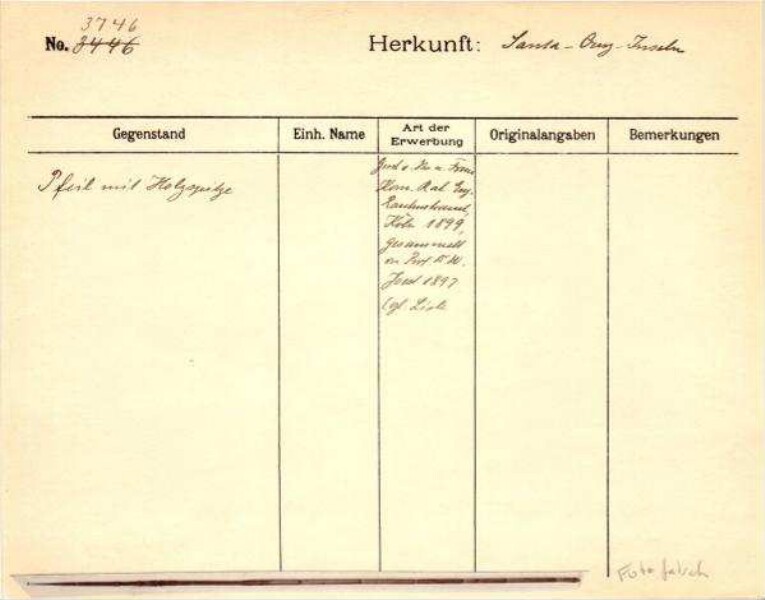 3746
No. 3446 Herkunft: Santa-Cruz-Inseln
Gegenstand Einh. Name Art der Erwerbung Originalangaben Bemerkungen
Pfeil mit Holzspitze
Kom. Rat Eug.
Rautenstrauch,
Köln 1899,
gesammelt
Prof. W.
Joest 1897
cf. Liste
Foto falsch